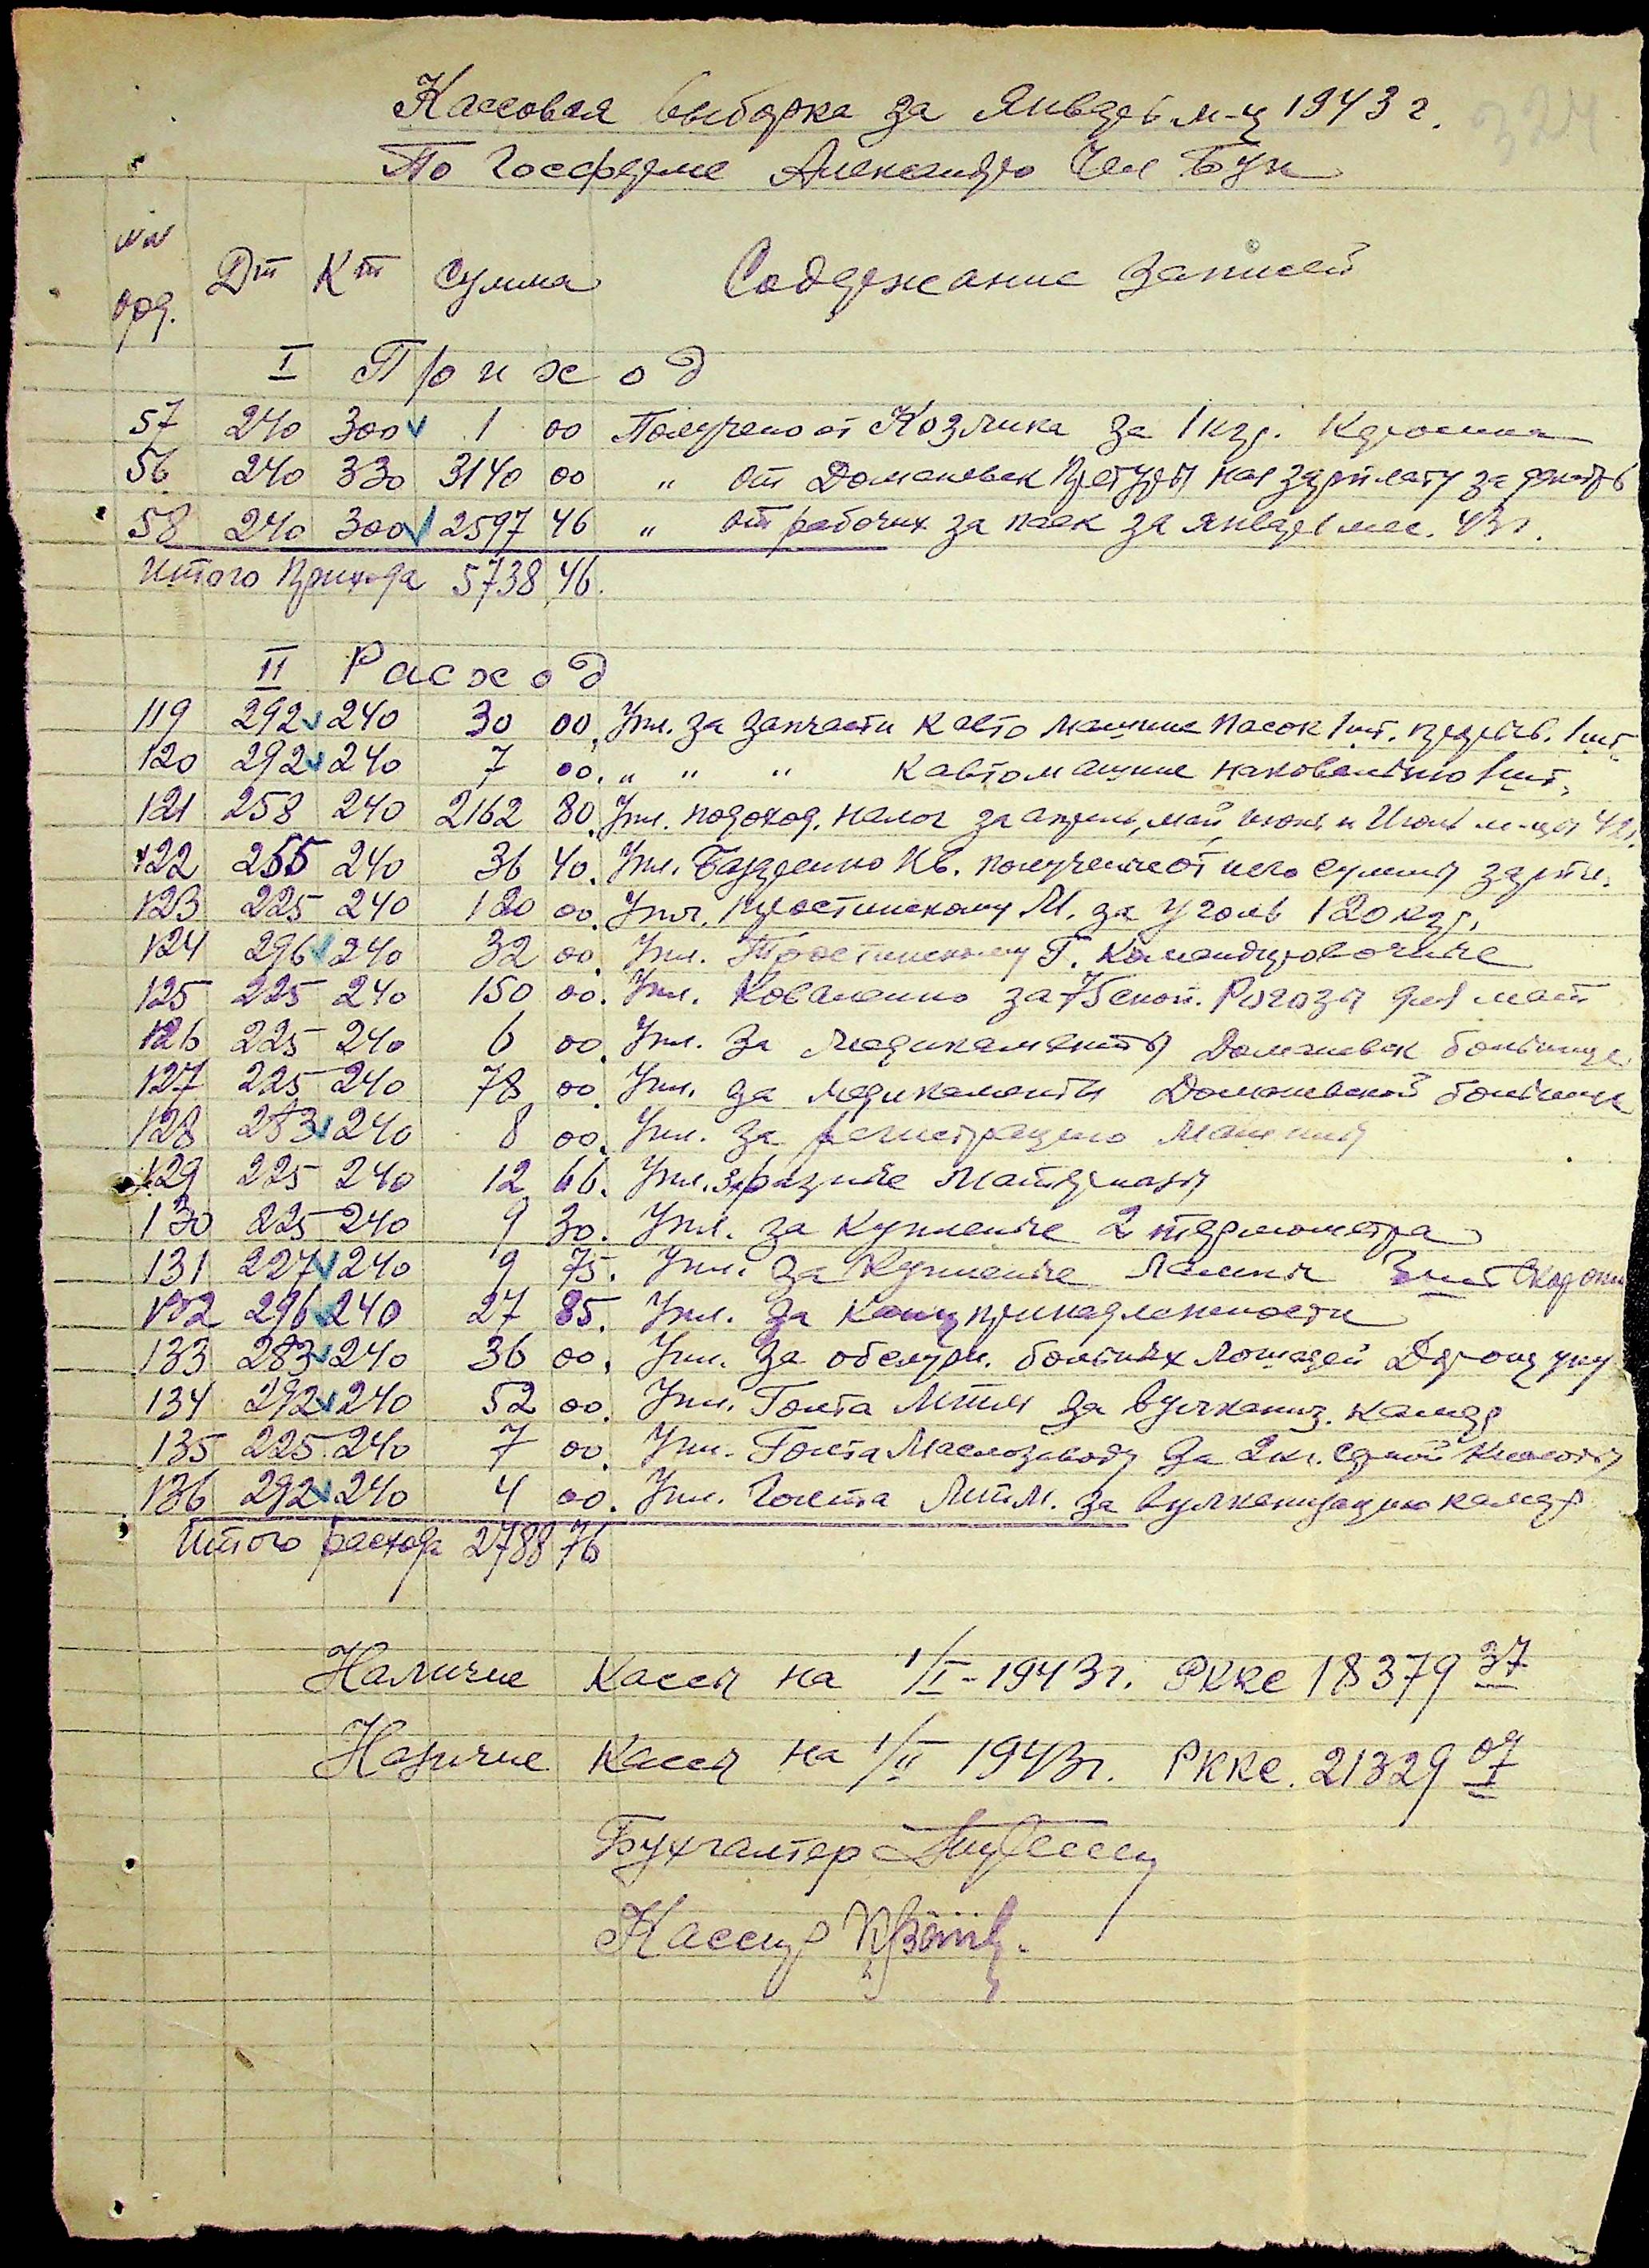 324
Кассовая выборка за Январь м-ц 1943 г.
По Госферме Александро Чел Бун
№№ орд. Дт Кт Сумма Содержание записей
I Приход
57 240 300 1 00 Получено от Козлика за 1 кгр. Керосина
56 240 330 3140 00 " от Доманевск Претуры на зарплату за
58 240 300 2597 46 " от рабочих за паек за январь мес. 43г.
Итого Прихода 5738 46.
II Расход
119 292 240 30 00. Упл. за запчасти к авто машине 1 шт. 1 шт.
120 292 240 7 00. " " " к автомашине 1 шт.
121 258 240 2162 80. Упл. подоход. налог за апрель, май, июнь и Июль м-цы 42г.
122 255 240 36 40. Упл. полученные от него суммы зарпл.
123 225 240 120 00. Упл. М. за уголь 120 кгр.
124 296 240 32 00. Упл. Тростинскому Г. Командировочные
125 225 240 150 00. Упл. Коваленко за 75 Рогозы для мат
126 225 240 6 00. Упл. за медикаменты Доманевск больнице
127 225 240 78 00. Упл. за медикаменты Доманевской больнице
128 283 240 8 00. Упл. за регистрацию Машины
129 225 240 12 66. Упл. за разные Материалы
130 225 240 9 30. Упл. за купленные 2 термометра
131 227 240 9 75. Упл. за купленные Лампы 3 шт
132 296 240 27 85. Упл. за Канц принадлежности
133 283 240 36 00. Упл. за больных лошадей
134 292 240 52 00. Упл. Голта за вулканиз. камер
135 225 240 7 00. Упл. Голта Маслозаводу за 2 кг. серной Кислоты
136 292 240 4 00. Упл. Голта за вулканизацию камер
Итого расхода 2788 76
Наличие Кассы на 1/I-1943г. РККС 18379 37
Наличие Кассы на 1/II 1943г. РККС. 21329 07
Бухгалтер
Кассир